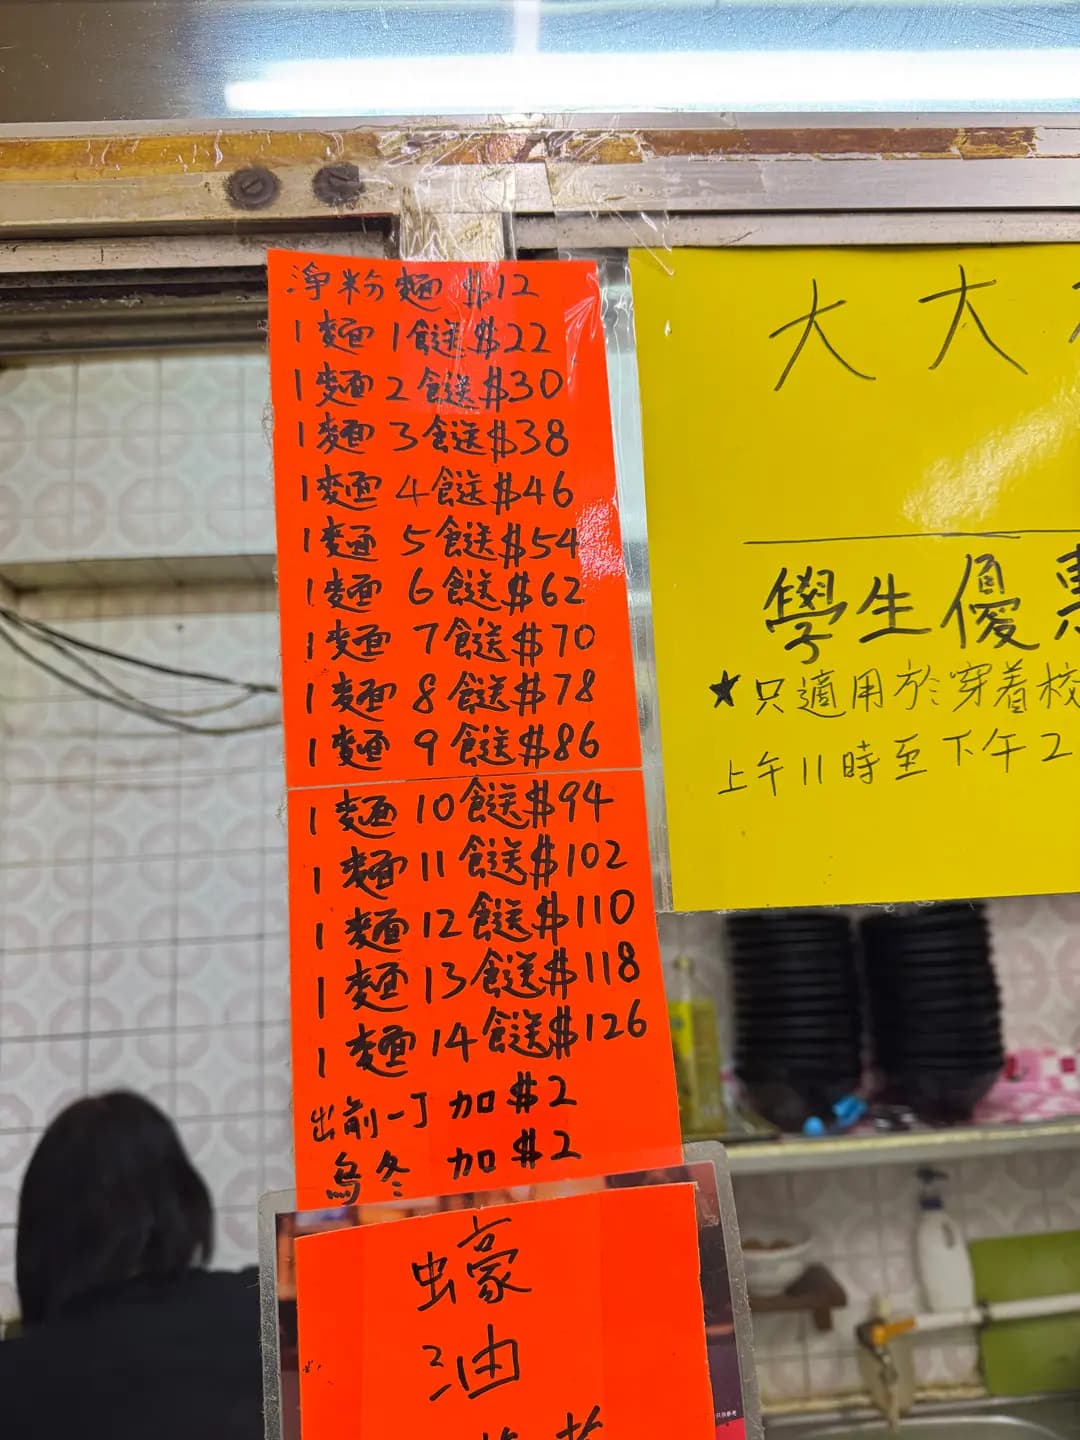 淨粉麵 $12
1麵 1餸 $22
1麵 2餸 $30
1麵 3餸 $38
1麵 4餸 $46
1麵 5餸 $54
1麵 6餸 $62
1麵 7餸 $70
1麵 8餸 $78
1麵 9餸 $86
1麵 10餸 $94
1麵 11餸 $102
1麵 12餸 $110
1麵 13餸 $118
1麵 14餸 $126
出前一丁 加 $2
烏冬 加 $2
蠔
油
大大
學生優惠
★只適用於穿着校
上午11時至下午2